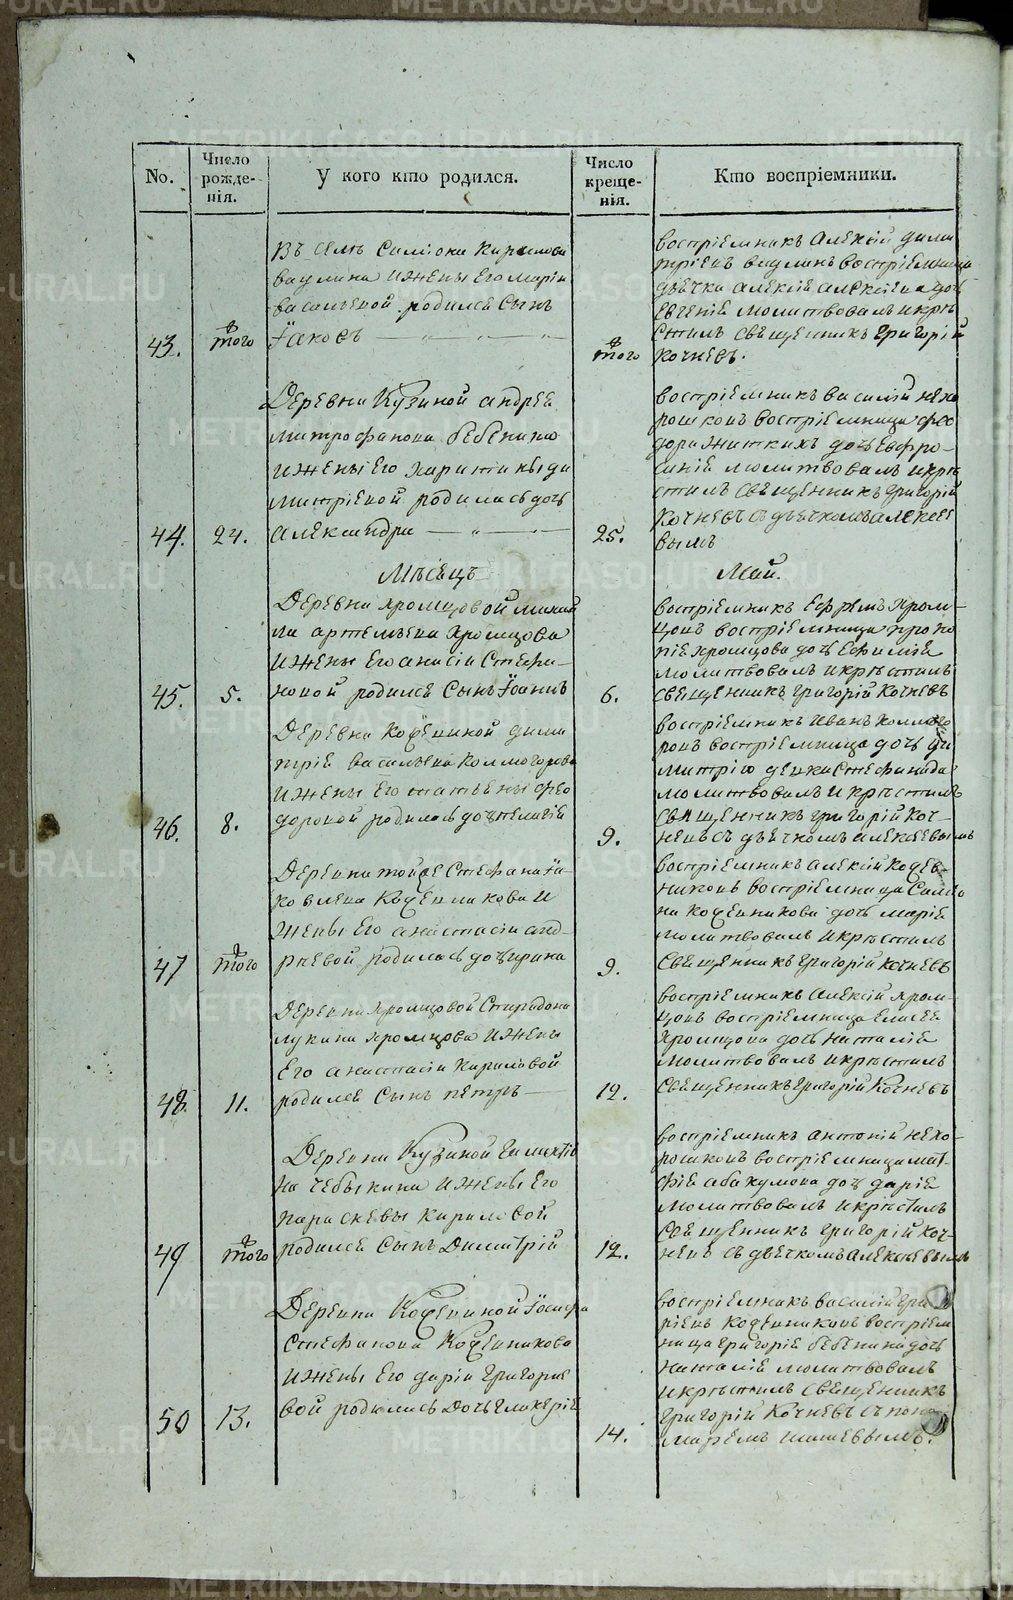 No.
Число рожде- нія.
У кого кто родился.
Число креще- нія.
Кто воспріемники.
Въ селѣ Симіона Кирилова
вадлина и жены его Маріи
васильевой родился сынъ
43. того Іаковъ
того
воспріемникъ Алексій дими
тріевъ вадлинъ воспріемница
дьячка алексія алексіева дочь
Евгенія молитвовалъ и кре
стилъ священникъ Григорій
Кочневъ.
Деревни Кузиной андрея
митрофанова бебенина
и жены его Харитины ди
митріевой родилась дочь
44. 24. александра
25.
воспріемникъ василій нехо
рошковъ воспріемница фео
дора житкихъ дочь Евфро-
синія молитвовалъ и кре
стилъ священникъ Григорій
Кочневъ съ дьячкомъ алексее
вымъ
Мѣсецъ
Май.
Деревни Хромцовой михай
ла артемьева Хромцова
и жены его анасіи Стефа-
45. 5. новой родился сынъ Іоаннъ
6.
воспріемникъ Ефремъ Хром-
цовъ воспріемница проко
пія хромцова дочь Ефимія
молитвовалъ и крестилъ
священникъ Григорій Кочневъ
Деревни Кожевиной дими
трія васильева Колмогорова
и жены его татьены фео
46. 8. доровой родилась дочь пелагія
9.
воспріемникъ Иванъ Колмого
ровъ воспріемница дочь ди
митрію денка Стефанида
молитвовалъ и крестилъ
священникъ григорій Коч-
невъ съ дьячкомъ алексеевымъ
Деревни тойже Стефана Іа-
ковлева Кожевникова и
жены его анастасіи анд-
47 того рѣевой родилась дочь ирина
9.
воспріемникъ алексій Кожев-
никовъ воспріемница Симео
на Кожевникова дочь марія
молитвовалъ и крестилъ
священникъ григорій Кочневъ
Деревни Хромцовой Спиридона
лукина хромцова и жены
его анастасіи Кириловой
48. 11. родился сынъ петръ
12.
воспріемникъ алексій хром-
цовъ воспріемница Елисея
Хромцова дочь наталія
молитвовалъ и крестилъ
священникъ григорій Кочневъ
Деревни Кузиной
на чебыкина и жены его
параскевы кириловой
49 того родился сынъ Димитрій
12.
воспріемникъ антоній нехо-
рошковъ воспріемница мат-
фія абакумова дочь дарія
молитвовалъ и крестилъ
священникъ григорій Коч-
невъ съ дьячкомъ алексѣевымъ
Деревни Кожевиной Іосифа
стефанова Кожевникова
и жены его даріи григорие
50 13. вой родилась дочь гликерія
14.
воспріемникъ василій гри
ріевъ Кожевниковъ воспріем
ница григорія бебенина дочь
наталія молитвовалъ
и крестилъ священникъ
григорій Кочневъ съ поно
марёмъ